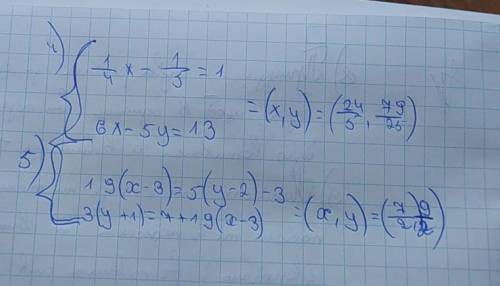 4) { 1/4 x - 1/3 = 1
6x - 5y = 13 = (x, y) = (24/5, 79/25)
5) { 19(x-3) = 5(y-2) - 3
3(y+1) = 7 + 19(x-3) = (x, y) = (7/2, 9/2)